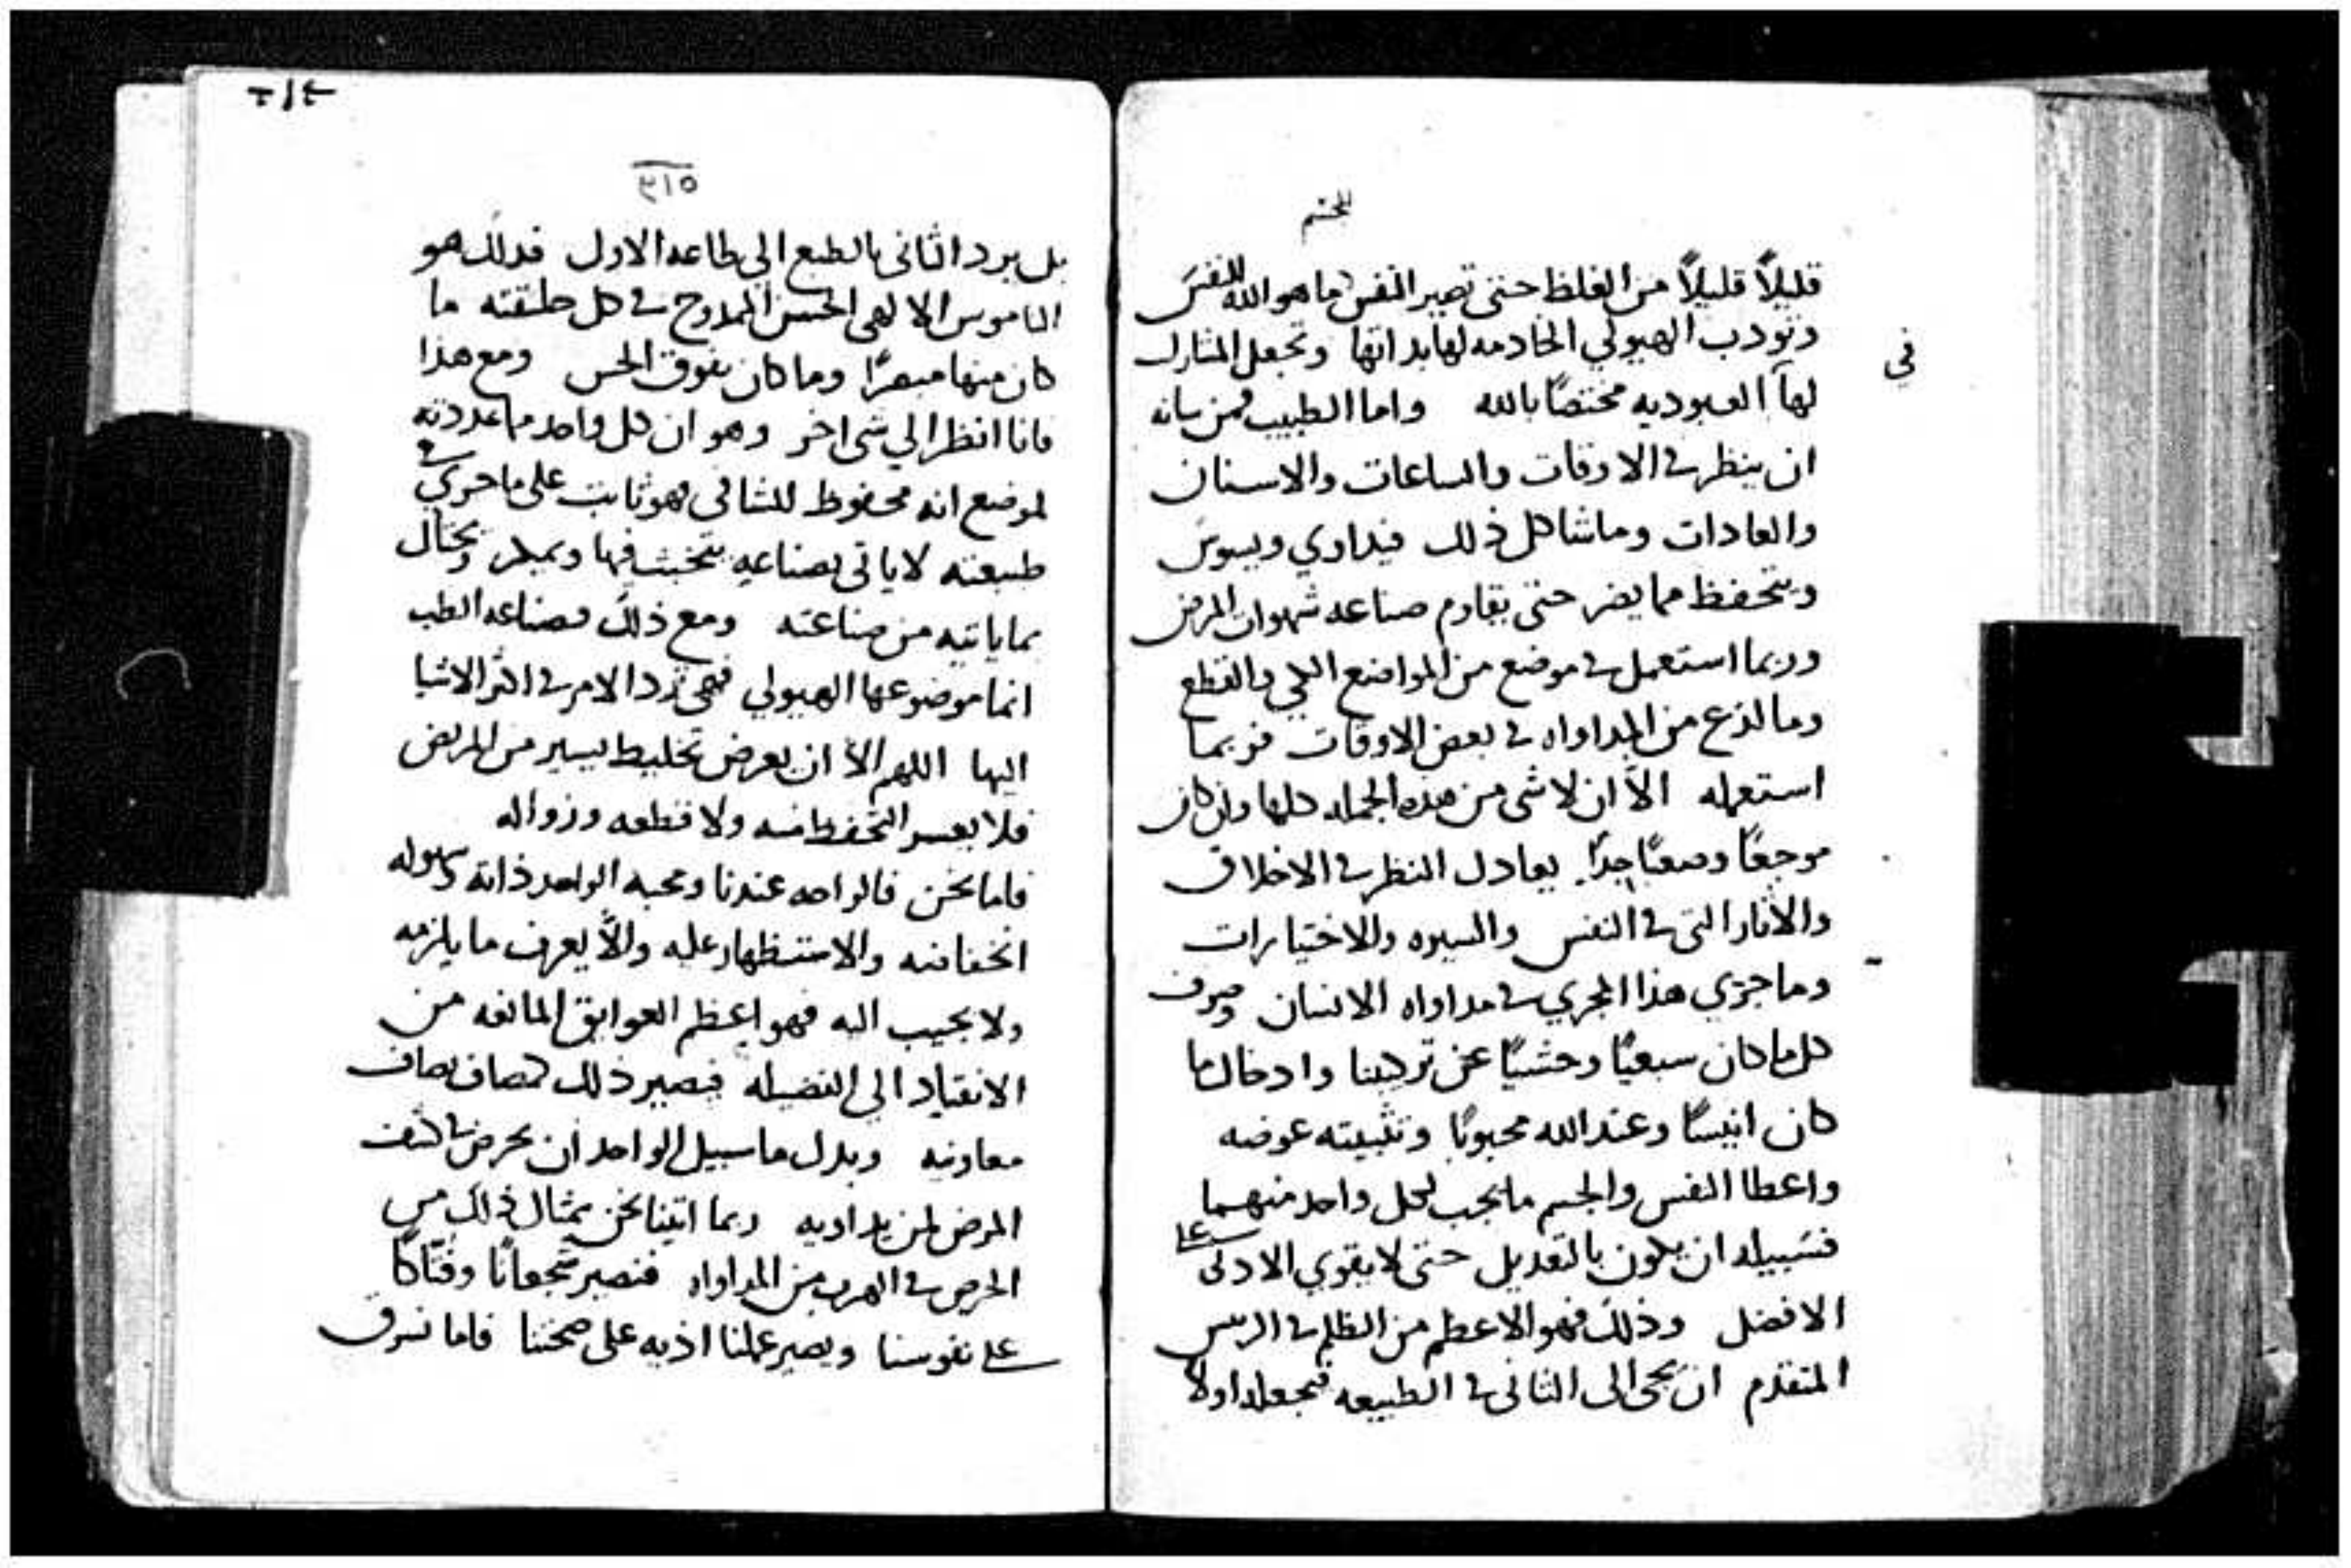 للجسم
قليلاً قليلاً من الغلظ حتى تصير النفس ما هو الله للنفس
وتودب الهيولي الخادمه لها بذاتها وتجعل المشارك
في
لها العبوديه مختصًا بالله واما الطبيب فمن شانه
ان ينظر في الاوقات والساعات والاسنان
والعادات وما شاكل ذلك فيداوي ويسوس
ويتحفظ مما يضر حتى يقاوم صناعه شهوات المرض
وربما استعمل في موضع من المواضع الكي والقطع
وما لذع من المداواه في بعض الاوقات فربما
استعمله الاّ ان لا شي من هذه الجمله كلها وان كان
موجعًا وصعبًا جدًا يعادل النظر في الاخلاق
والاثار التي في النفس والسيره والاختيارات
وما جري هذا المجري في مداواه الانسان وصرف
كل ما كان سبعيًا وحشيًا عن تركيبنا وادخال ما
كان انيسًا وعند الله محبوبًا وتثبيته عوضه
واعطا النفس والجسم ما يجب لكل واحد منهما
فسبيله ان يكون بالتعديل حتى لا يقوي الادنى على
الافضل وذلك فهو الاعظم من الظلم في الريس
المتقدم ان يجي الى الثاني في الطبيعه فيجعله اولا
٣١٤
٣١٥
بل يرد الثاني بالطبع الي طاعه الاول فذلك هو
الناموس الالهي الحسن الممدوح في كل خليقته ما
كان منها مبصرًا وما كان يفوق الحس ومع هذا
فانا انظر الي شي اخر وهو ان كل واحد ما عددته
لموضع انه محفوظ للشافي فهو ثابت على ما جري في
طبيعته لا ياتي بصناعه يتخبث فيها ويمكر ويحتال
بما ياتيه من صناعته ومع ذلك فصناعه الطب
انما موضوعها الهيولي فهي ترد الامر في اكثر الاشيا
اليها اللهم الاّ ان يعرض تخليط يسير من المريض
فلا يعسر التحفظ منه ولا قطعه وزواله
فاما نحن فالراحه عندنا ومحبه الواحد ذاته وسهوله
والاستظهار عليه والاّ يعرف ما يلزمه
ولا يجيب اليه فهو اعظم العوايق المانعه من
الانقياد الي الفضيله فيصير ذلك كمصاف يصاف
معاونيه وبدل ما سبيل الواحد ان يحرص في كشف
المرض لمن يداويه ربما اتينا نحن بمثال ذلك من
الحرص في الهرب من المداواه فنصير شجعانًا وفتّاكًا
على نفوسنا ويصير عملنا اذيه على صحتنا فاما نسرق